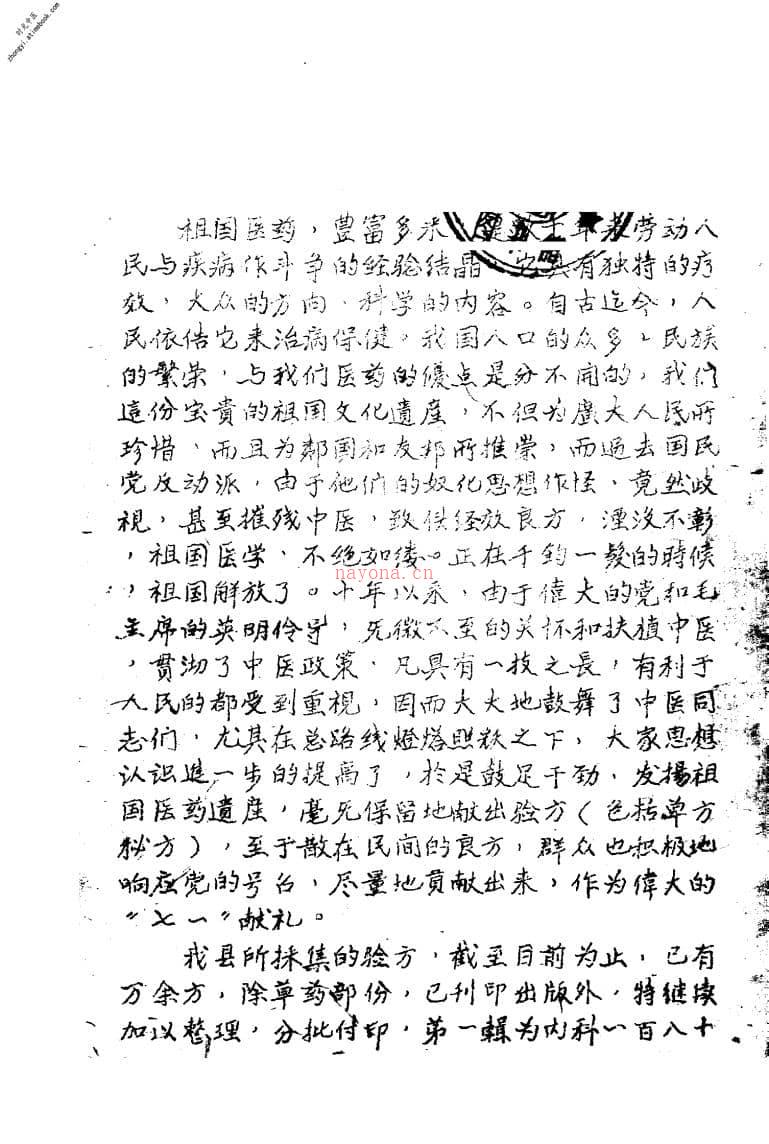 时光中医
zhongyi.atimebook.com
祖国医药，豊富多米 是数千年来劳动人
民与疾病作斗争的经验结晶。它具有独特的疗
效，大众的方向，科学的内容。自古迄今，人
民依估它来治病保健。我国人口的众多，民族
的繁荣，与我们医药的優点是分不開的，我们
這份宝貴的祖国文化遺産，不但为廣大人民所
珍惜，而且为鄰国和友邦所推崇，而過去国民
党反动派，由于他们的奴化思想作怪，竟然歧
視，甚至摧残中医，致供経效良方，湮没不彰
，祖国医学，不绝如缕。正在千鈞一髮的時候
nayona.cn
，祖国解放了。十年以来，由于偉大的党和毛
主席的英明伶导，无微不至的关怀和扶植中医
，贯沏了中医政策，凡具有一技之長，有利于
人民的都受到重視，因而大大地鼓舞了中医同
志们，尤其在总路线燈塔照耀之下，大家思想
认识進一步的提高了，於是鼓足干劲，发揚祖
国医药遺産，毫无保留地献出验方（包括单方
秘方），至于散在民间的良方，群众也积极地
响应党的号召，尽量地貢献出来，作为偉大的
“七一”献礼。
我县所採集的验方，截至目前为止，已有
万余方，除草药部份，已刊印出版外，特继续
加以整理，分批付印，第一輯为内科一百八十